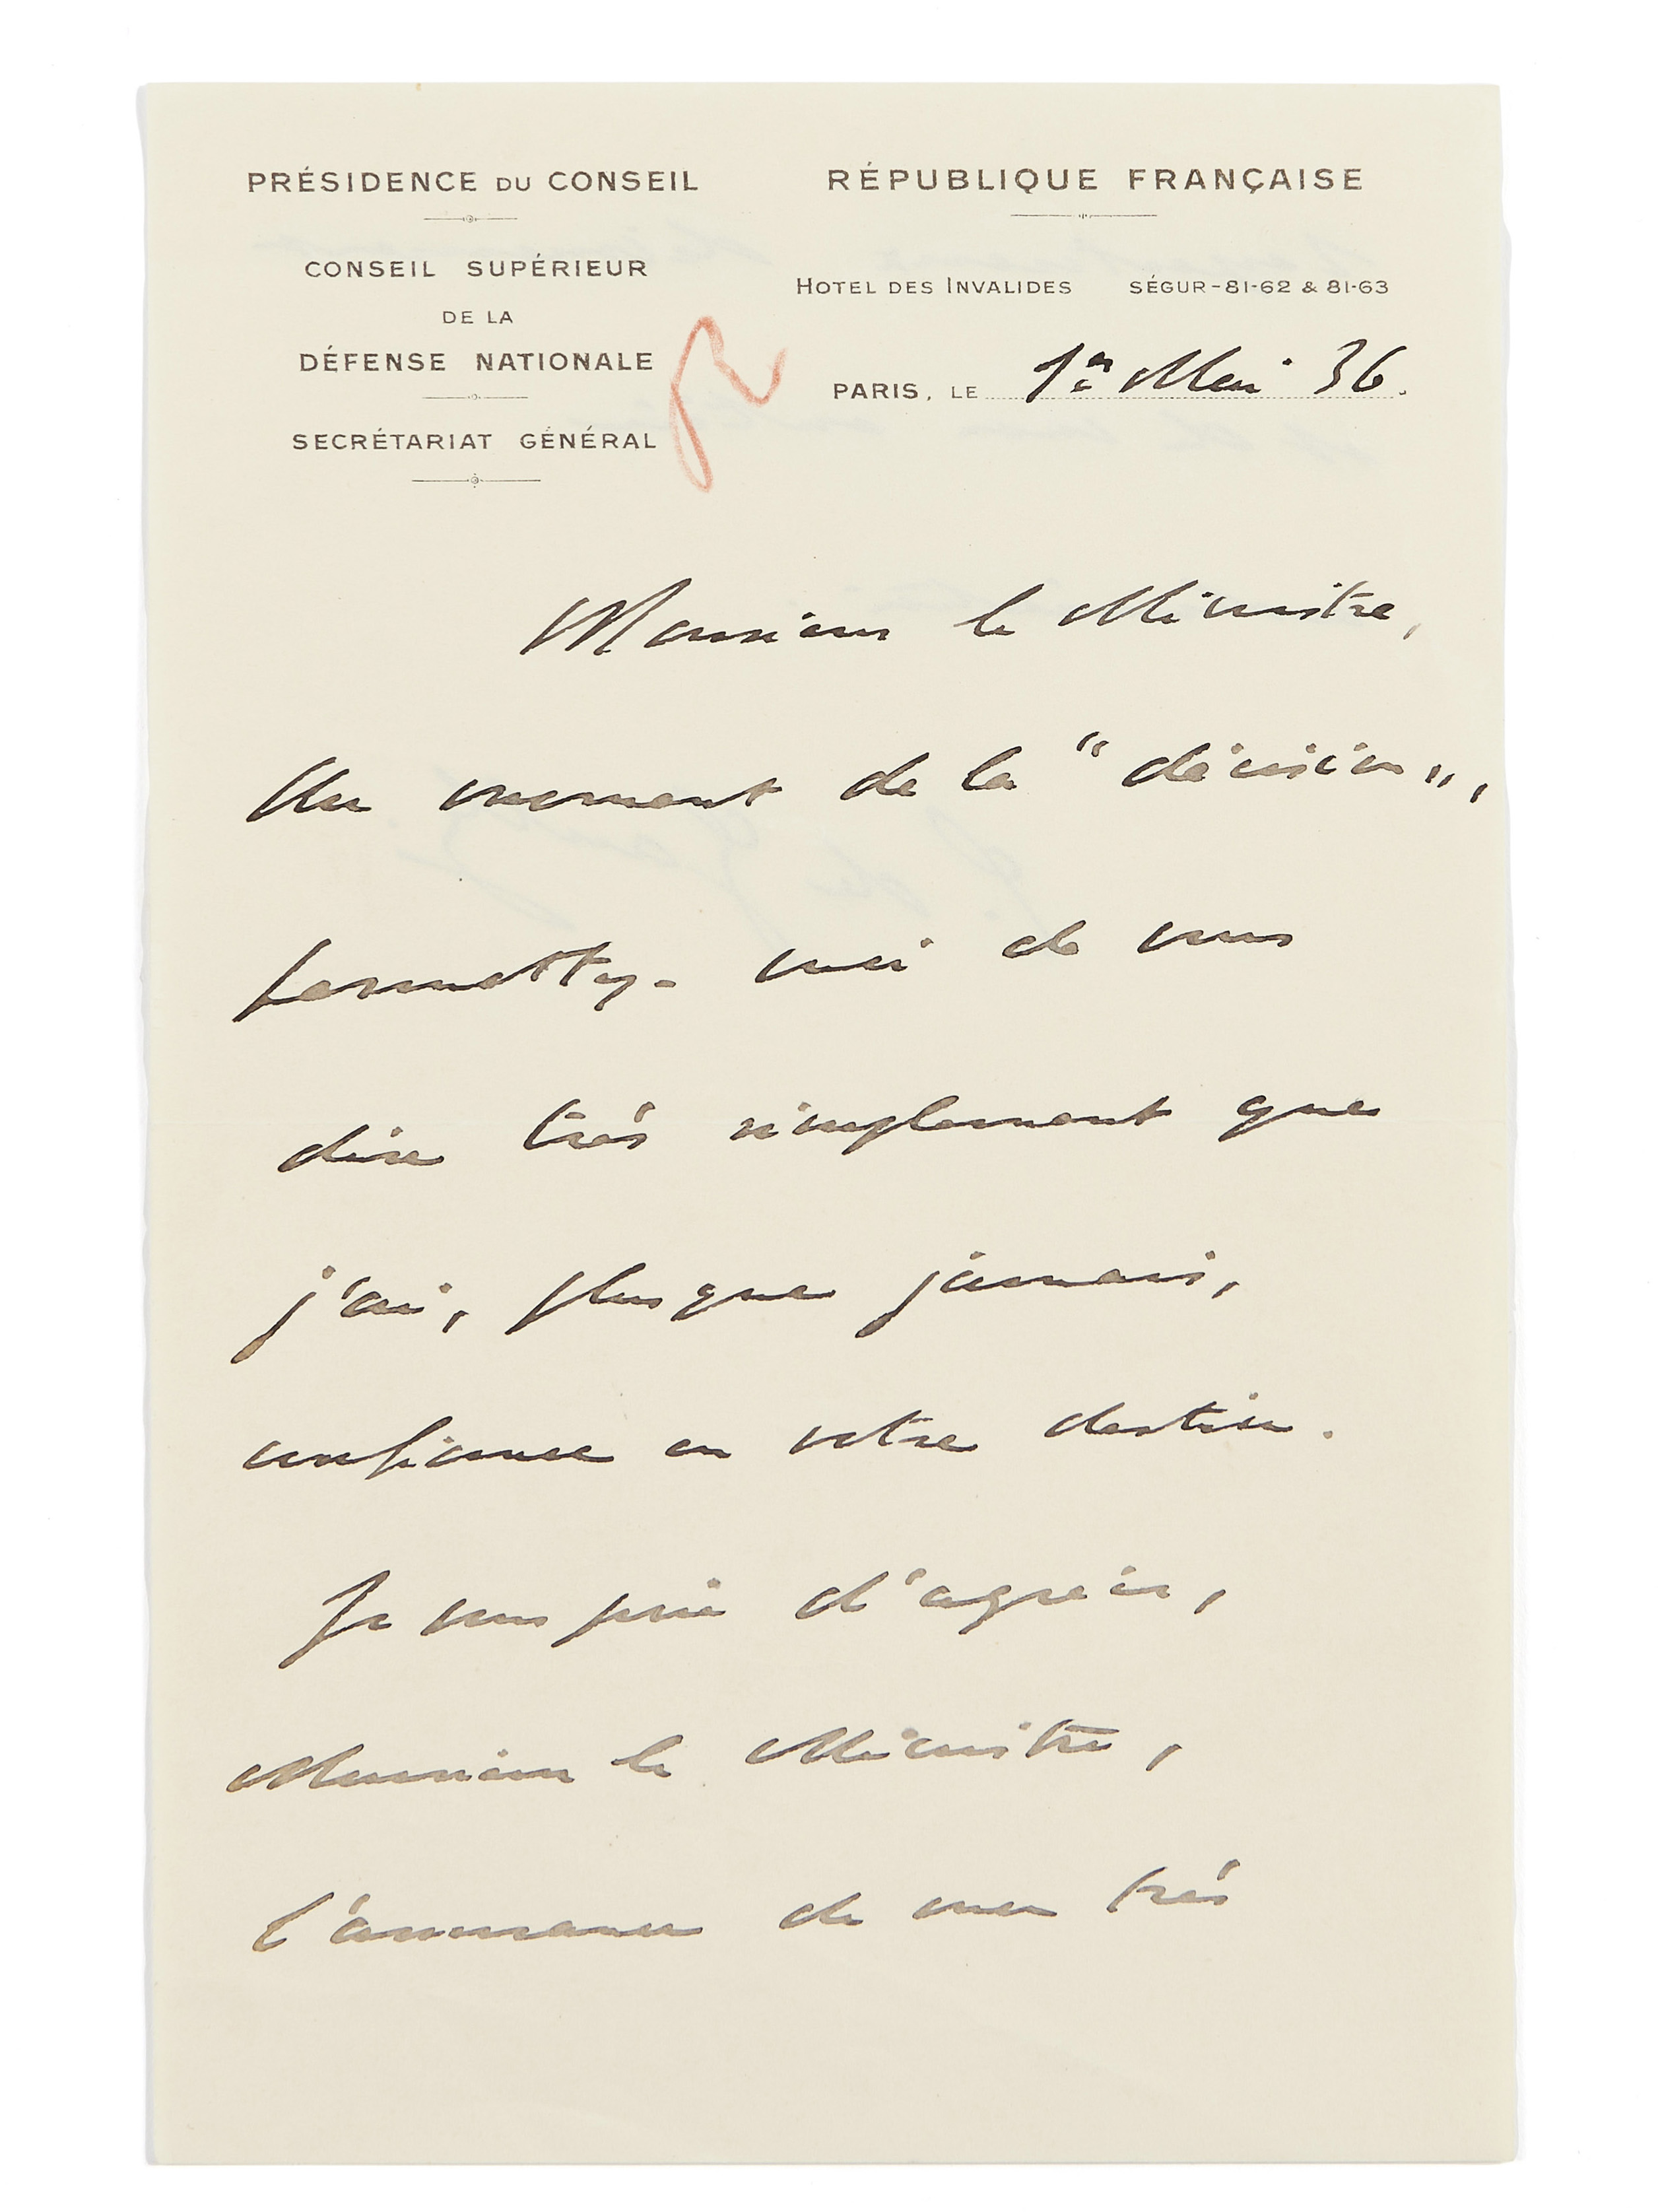 PRÉSIDENCE DU CONSEIL
CONSEIL SUPÉRIEUR
DE LA
DÉFENSE NATIONALE
SECRÉTARIAT GÉNÉRAL
RÉPUBLIQUE FRANÇAISE
HOTEL DES INVALIDES SÉGUR-81-62 & 81-63
PARIS, LE 1er Mai 36.
Monsieur le Ministre,
Au moment de la "décision",
permettez-moi de vous
dire très simplement que
j'ai, plus que jamais,
confiance en votre destin.
Je vous prie d'agréer,
Monsieur le Ministre,
l'assurance de mon très